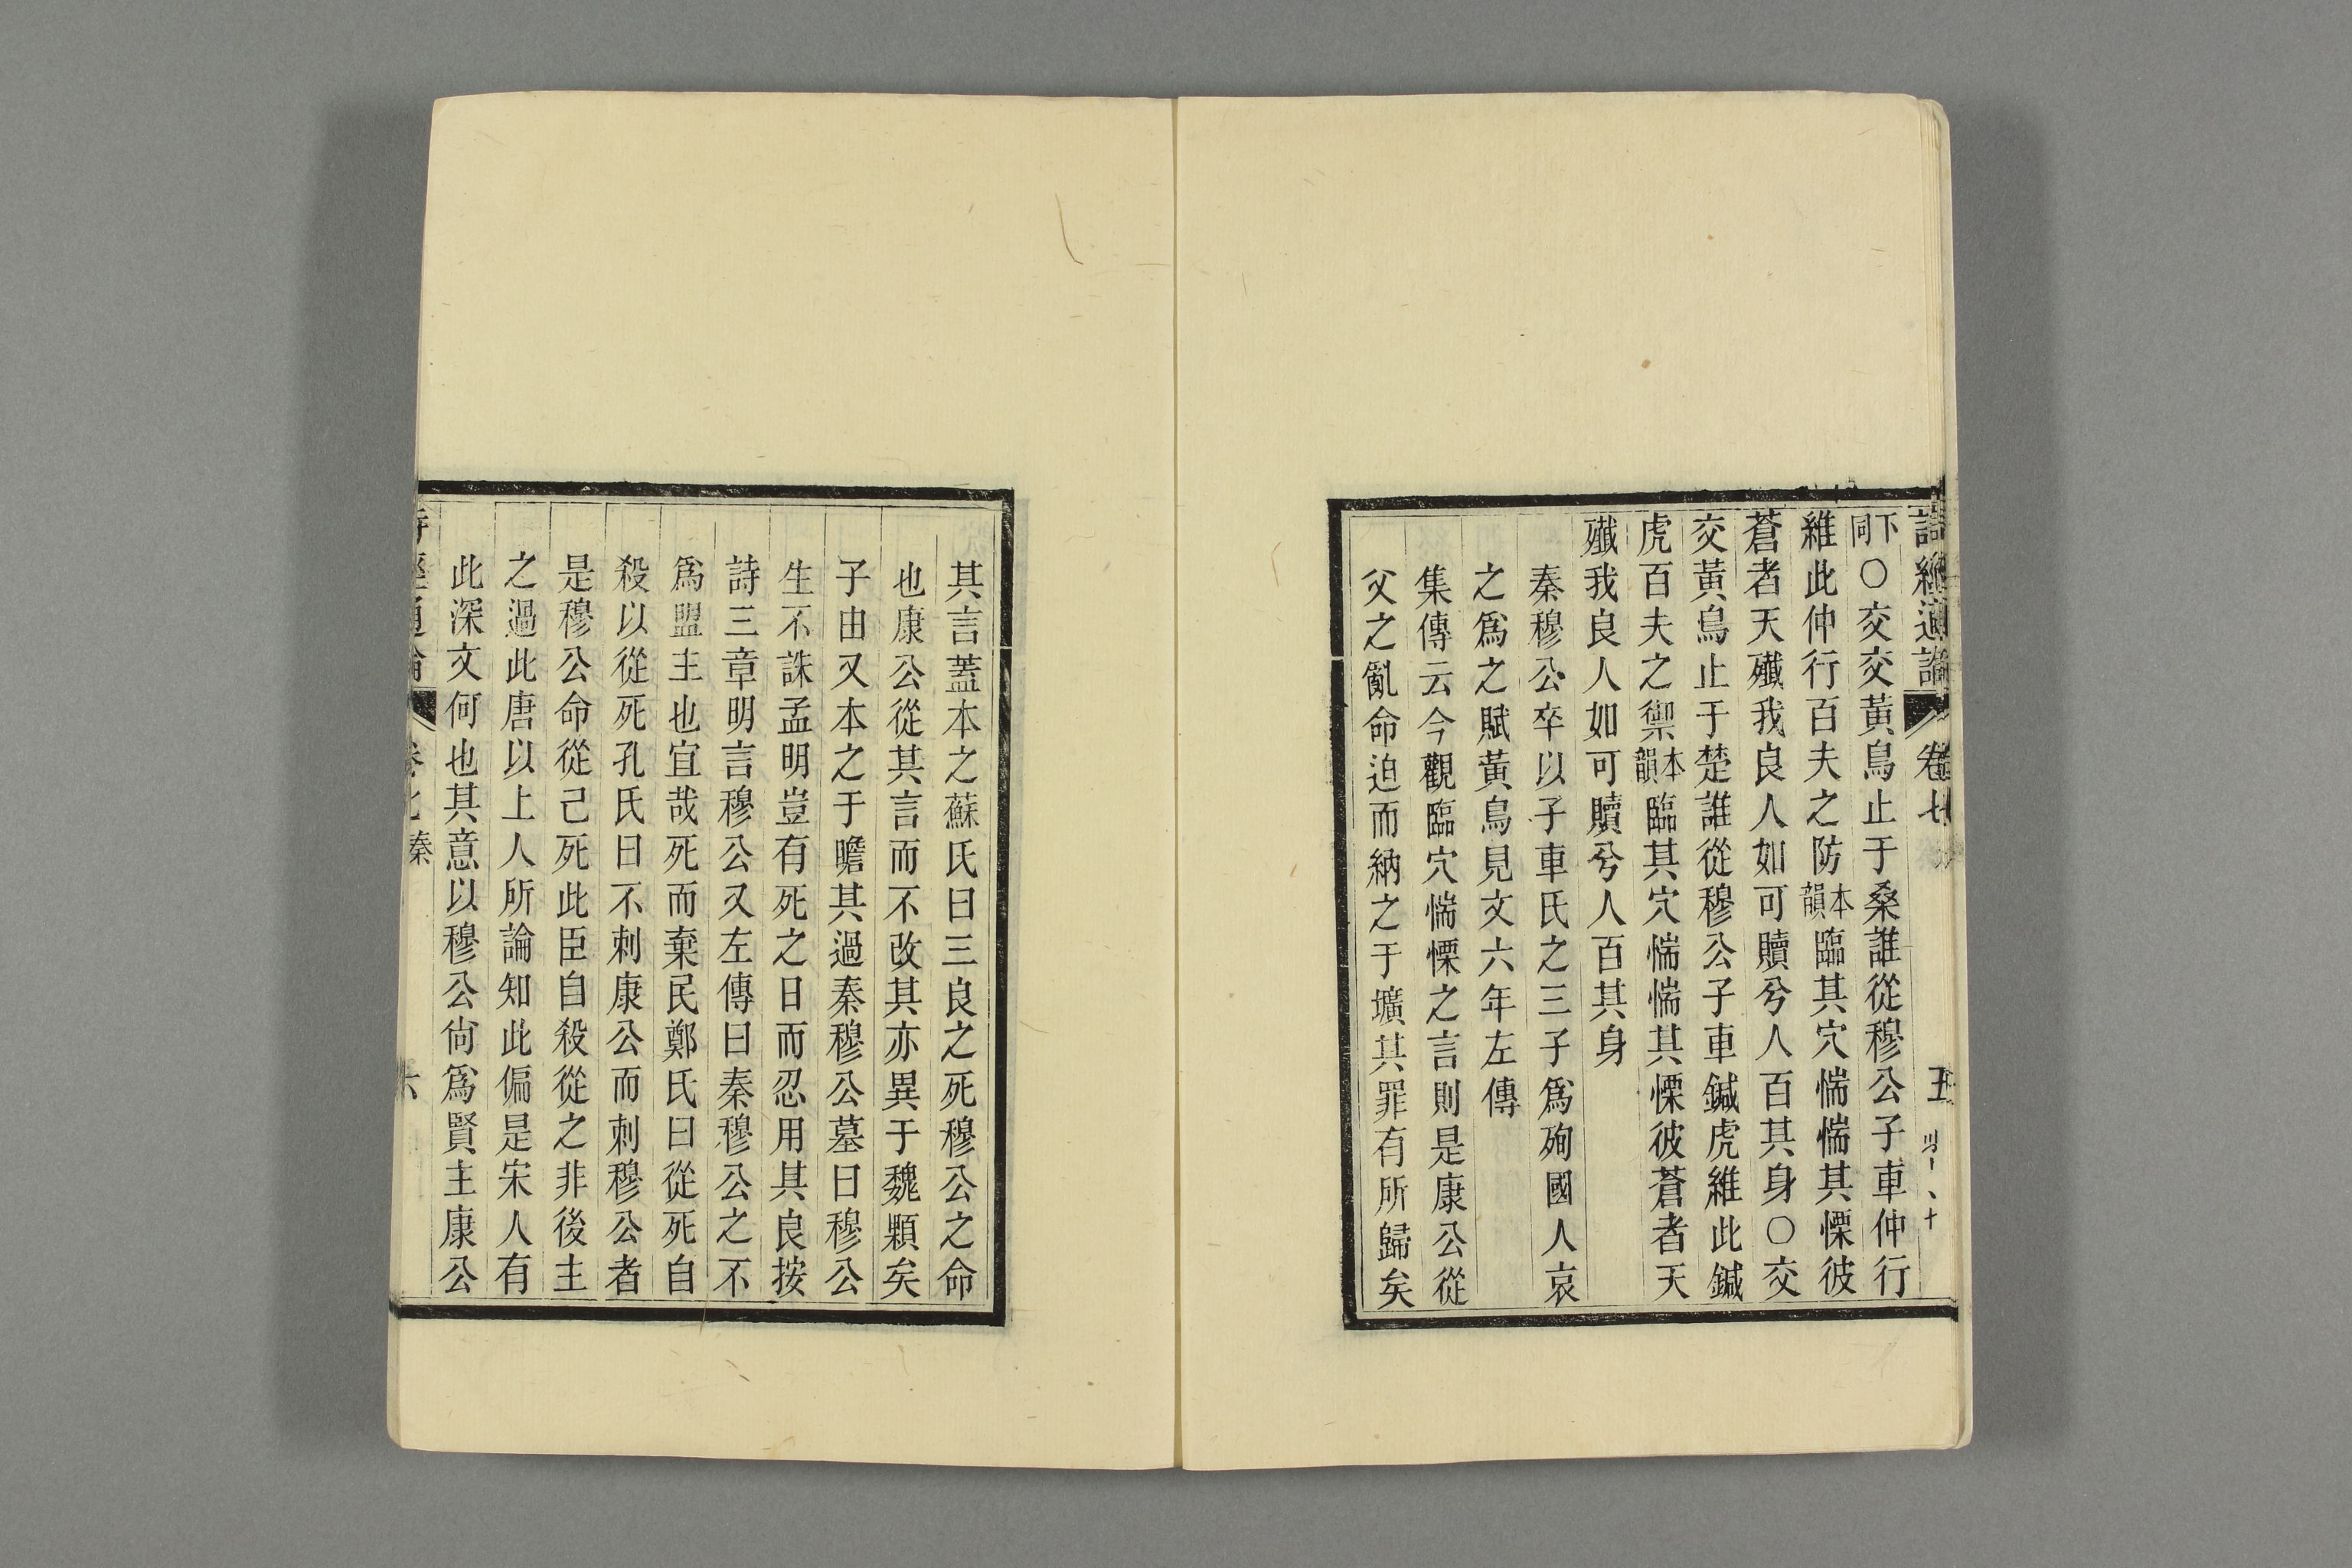 詩經通論 卷七 五
下同○交交黃鳥止于桑誰從穆公子車仲行
維此仲行百夫之防本韻臨其穴惴惴其慄彼
蒼者天殲我良人如可贖兮人百其身○交
交黃鳥止于楚誰從穆公子車鍼虎維此鍼
虎百夫之禦本韻臨其穴惴惴其慄彼蒼者天
殲我良人如可贖兮人百其身
秦穆公卒以子車氏之三子爲殉國人哀
之爲之賦黃鳥見文六年左傳
集傳云今觀臨穴惴慄之言則是康公從
父之亂命迫而納之于壙其罪有所歸矣
其言蓋本之蘇氏曰三良之死穆公之命
也康公從其言而不改其亦異于魏顆矣
子由又本之于瞻其過秦穆公墓曰穆公
生不誅孟明豈有死之日而忍用其良按
詩三章明言穆公又左傳曰秦穆公之不
爲盟主也宜哉死而棄民鄭氏曰從死自
殺以從死孔氏曰不刺康公而刺穆公者
是穆公命從己死此臣自殺從之非後主
之過此唐以上人所論知此偏是宋人有
此深文何也其意以穆公尙爲賢主康公
秦 六